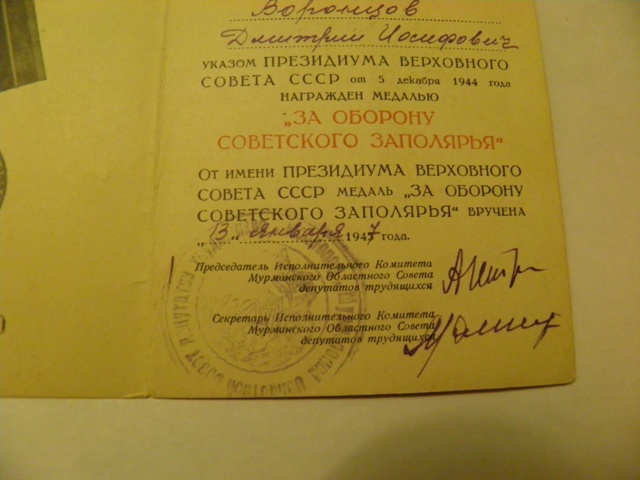 Воронцов
Дмитрий Иосифович
УКАЗОМ ПРЕЗИДИУМА ВЕРХОВНОГО
СОВЕТА СССР от 5 декабря 1944 года
НАГРАЖДЕН МЕДАЛЬЮ
„ЗА ОБОРОНУ
СОВЕТСКОГО ЗАПОЛЯРЬЯ“
От имени ПРЕЗИДИУМА ВЕРХОВНОГО
СОВЕТА СССР МЕДАЛЬ „ЗА ОБОРОНУ
СОВЕТСКОГО ЗАПОЛЯРЬЯ“ ВРУЧЕНА
„13“ января 1947 года.
Председатель Исполнительного Комитета
Мурманского Областного Совета
депутатов трудящихся
Секретарь Исполнительного Комитета
Мурманского Областного Совета
депутатов трудящихся